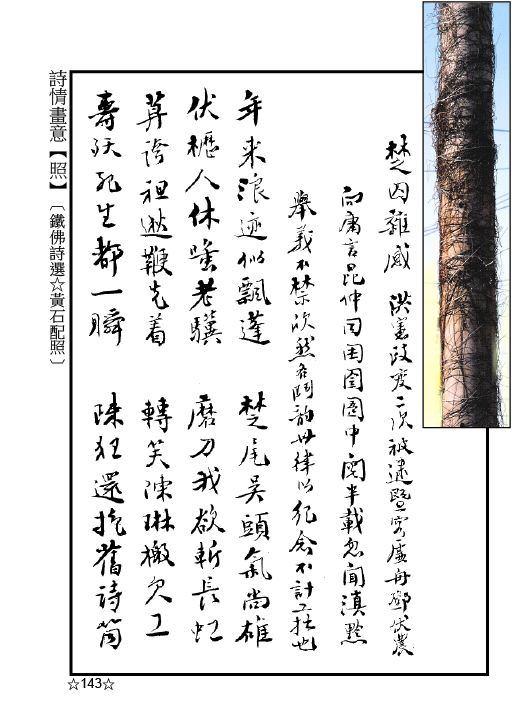 詩情畫意【照】〔鐵佛詩選☆黃石配照〕
楚囚雜感 洪憲政變二次被逮暨客廬舟鄧伏農
向庸言昆仲同困囹圄中閱半載忽聞滇黔
舉義不禁欣然各鬥韵廿律以紀念不計工拙也
年來浪迹似飄蓬 楚尾吳頭氣尚雄
伏櫪人休嗤老驥 磨刀我欲斬長虹
莫誇祖逖鞭先着 轉笑陳琳檄欠工
壽殀死生都一瞬 疎狂還抱舊詩筒
☆143☆